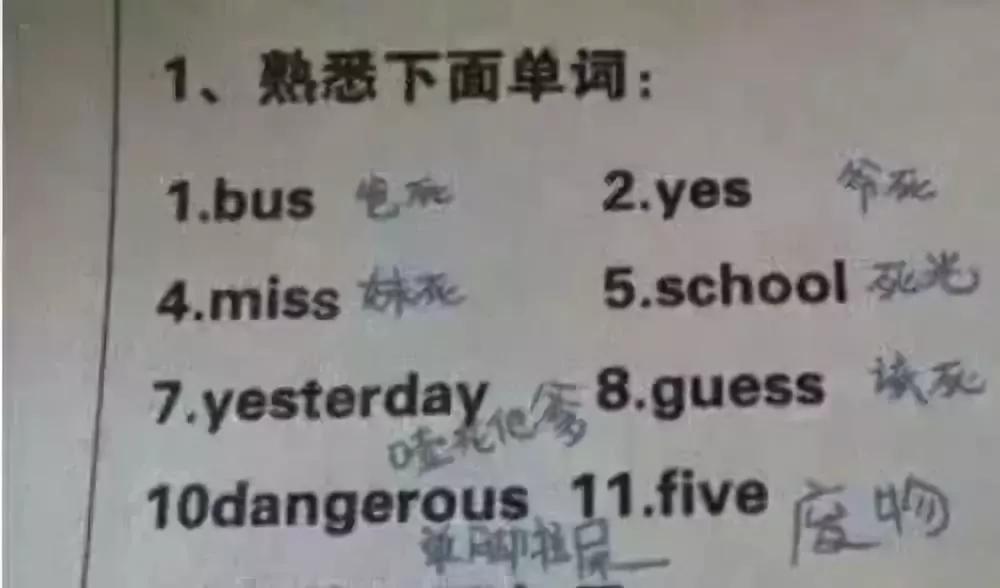 1、熟悉下面单词：
1.bus 包死 2.yes 爷死
4.miss 妹死 5.school 死光
7.yesterday 噎死他爹 8.guess 该死
10dangerous 单脚拉屎 11.five 废物